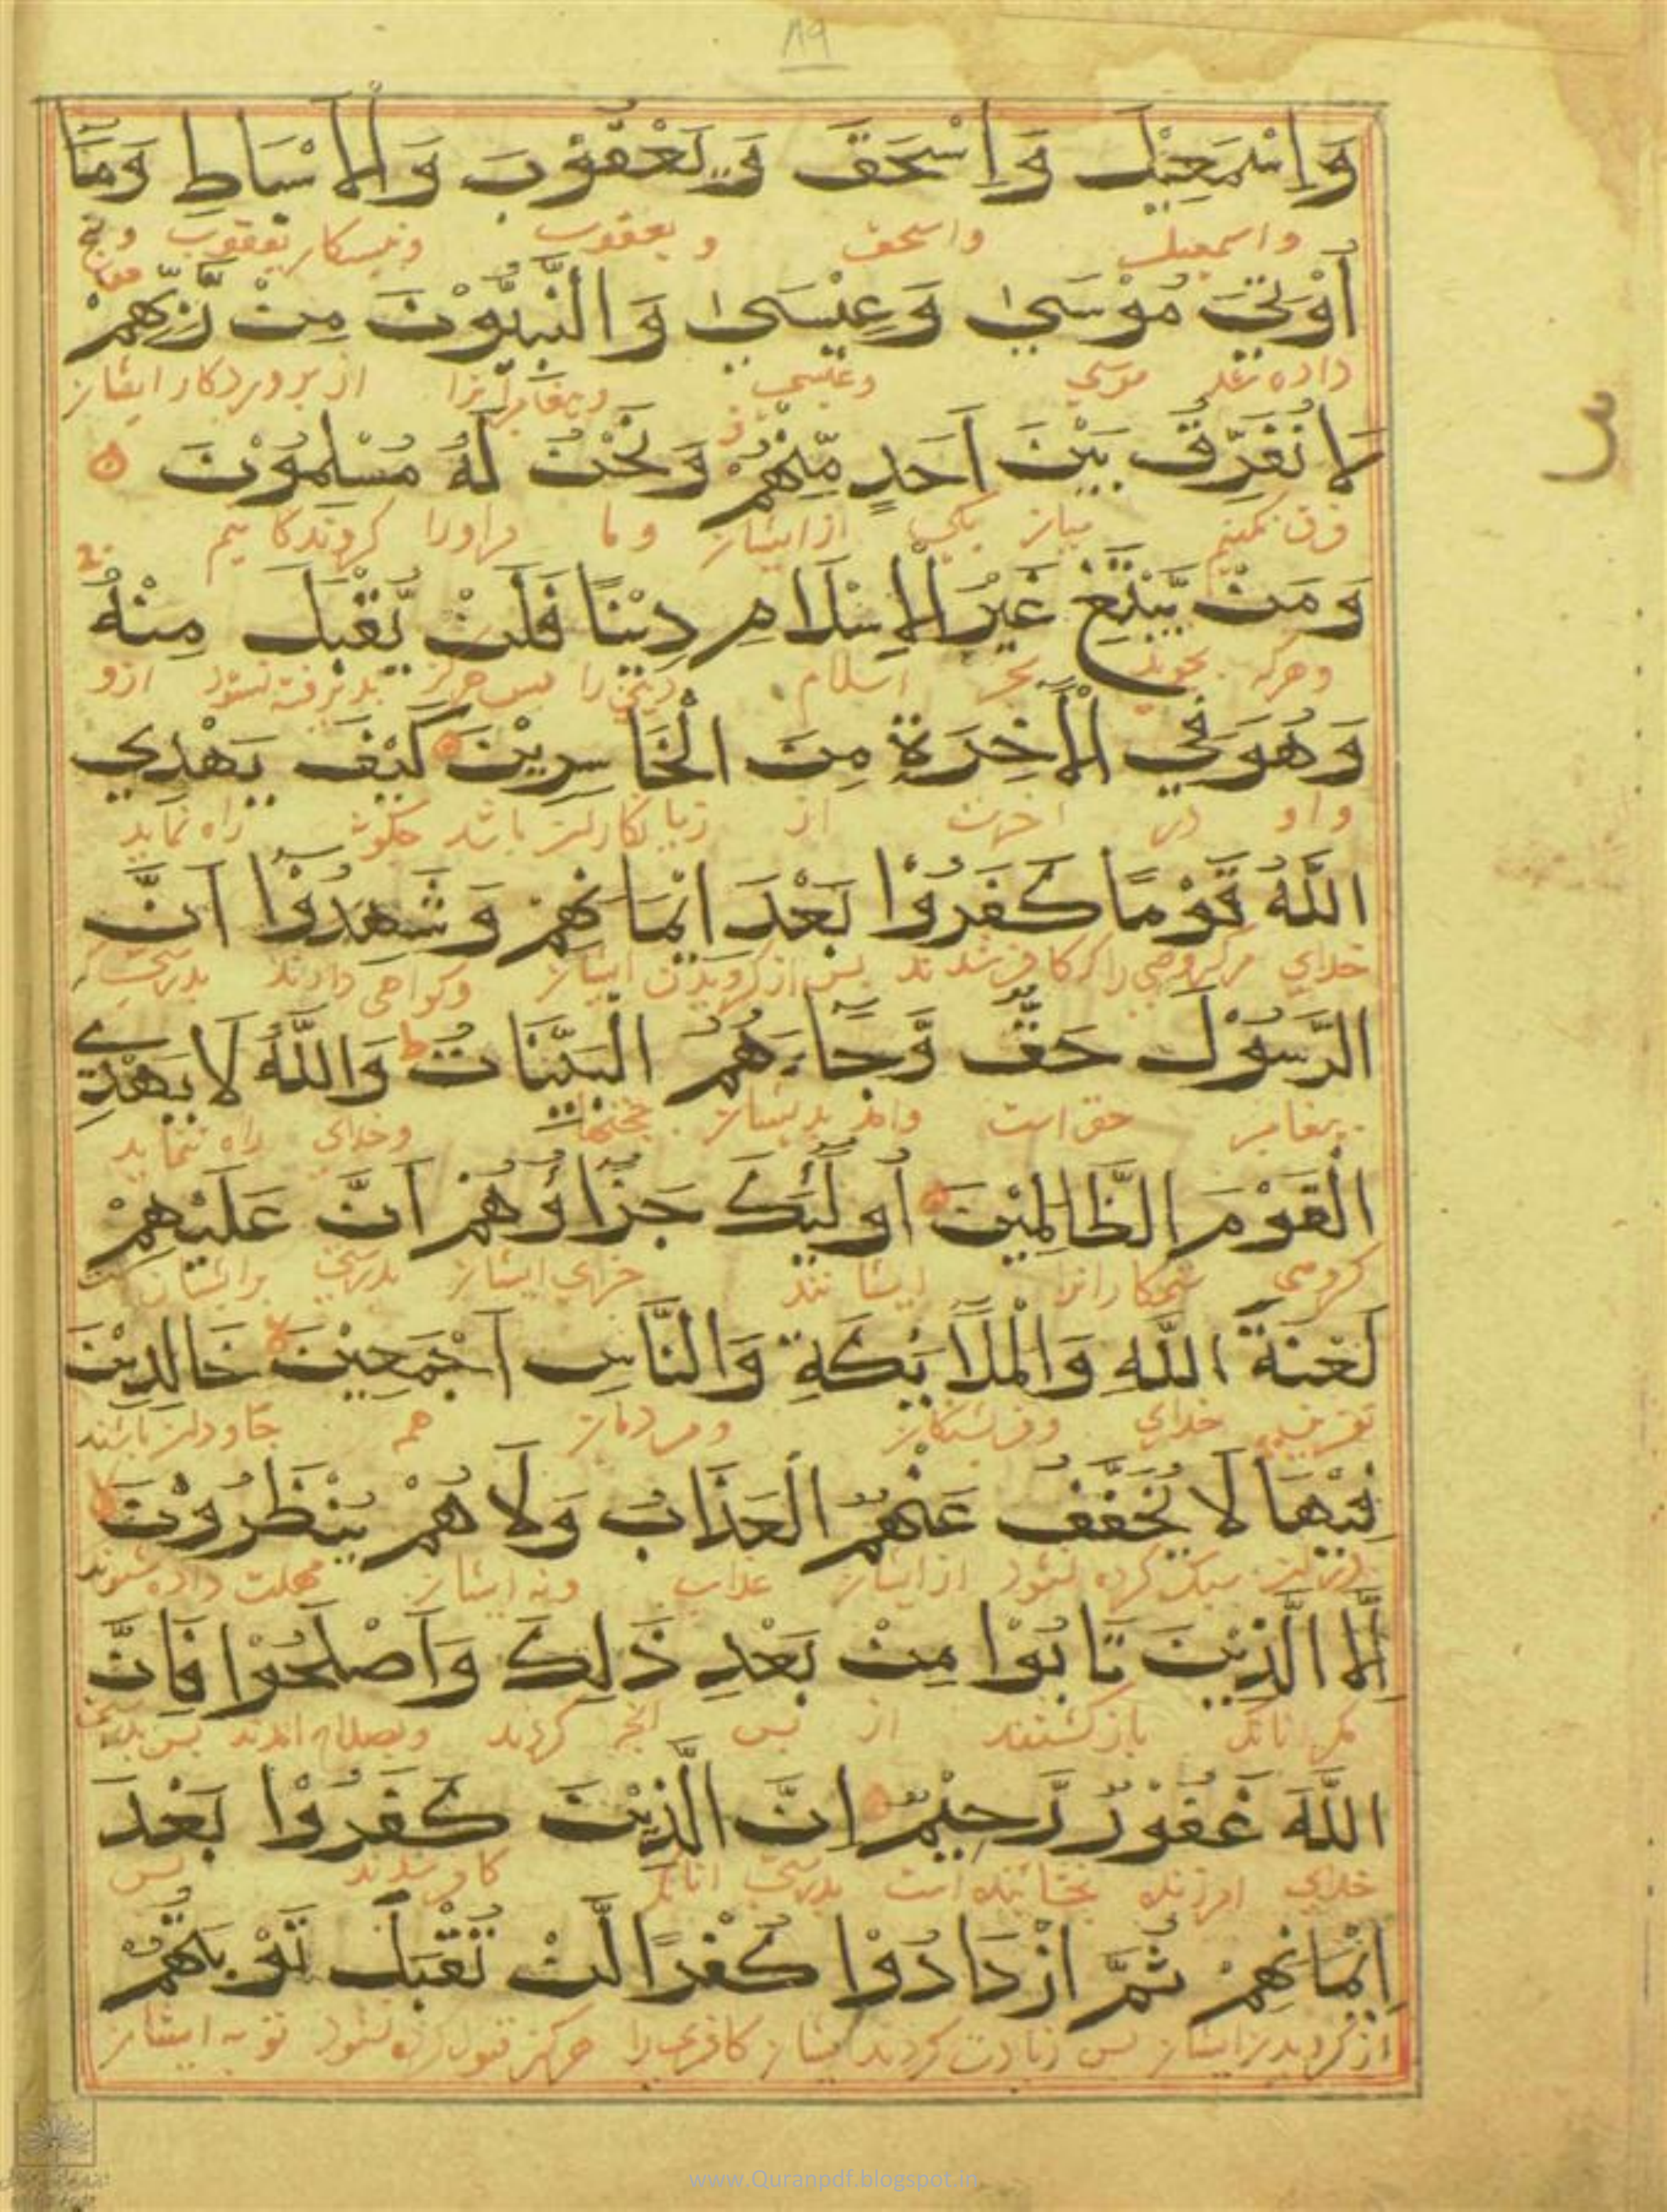 ٨٩
وَاِسْمَعِيْلَ وَاِسْحَقَ وَيَعْقُوْبَ وَالْاَسْبَاطِ وَمَآ
واسمعیل واسحق و یعقوب ونبیسکان یعقوب
اُوْتِيَ مُوْسَىٰ وَعِيْسَىٰ وَالنَّبِيُّوْنَ مِنْ رَّبِّهِمْ
داده شد موسی وعیسی وپیغامبرانرا از پروردکار ایشان
لَا نُفَرِّقُ بَيْنَ اَحَدٍ مِّنْهُمْ وَنَحْنُ لَهُ مُسْلِمُوْنَ
فرق نکنیم میان یکی از ایشان وما مراورا کروندکانیم
وَمَنْ يَّبْتَغِ غَيْرَ الْاِسْلَامِ دِيْنًا فَلَنْ يُّقْبَلَ مِنْهُ
وهرکه بجوید بجز اسلام دینی را پس هرکز پذیرفته نشود ازو
وَهُوَ فِي الْاٰخِرَةِ مِنَ الْخَاسِرِيْنَ كَيْفَ يَهْدِي
واو در اخرت از زیانکاران باشد چکونه راه نماید
اللّٰهُ قَوْمًا كَفَرُوْا بَعْدَ اِيْمَانِهِمْ وَشَهِدُوْٓا اَنَّ
خدای مرکروهی را که کافر شدند پس از کرویدن ایشان وکواهی دادند بدرستی
الرَّسُوْلَ حَقٌّ وَّجَآءَهُمُ الْبَيِّنَاتُ ط وَاللّٰهُ لَا يَهْدِي
پیغامبر حق است وامد بدیشان وخدای راه ننماید
الْقَوْمَ الظَّالِمِيْنَ اُولٰٓئِكَ جَزَآؤُهُمْ اَنَّ عَلَيْهِمْ
کروهی ستمکارانرا ایشانند جزای ایشان بدرستی برایشان
لَعْنَةَ اللّٰهِ وَالْمَلَآئِكَةِ وَالنَّاسِ اَجْمَعِيْنَ لا خَالِدِيْنَ
نفرین خدای وفرشتکان ومردمان همه جاودان باشند
فِيْهَا لَا يُخَفَّفُ عَنْهُمُ الْعَذَابُ وَلَا هُمْ يُنْظَرُوْنَ
دران سبک کرده نشود از ایشان عذاب ونه ایشان مهلت داده شوند
اِلَّا الَّذِيْنَ تَابُوْا مِنْ بَعْدِ ذَلِكَ وَاَصْلَحُوْا فَاِنَّ
مکر انانکه بازکشتند از پس انچه کردند وبصلاح امدند پس بدرستی
اللّٰهَ غَفُوْرٌ رَّحِيْمٌ اِنَّ الَّذِيْنَ كَفَرُوْا بَعْدَ
خدای امرزنده بخشاینده است بدرستی انانکه کافر شدند پس
اِيْمَانِهِمْ ثُمَّ ازْدَادُوْا كُفْرًا لَّنْ تُقْبَلَ تَوْبَتُهُمْ
از کرویدن ایشان پس زیادت کردند ایشان کافری را هرکز قبول کرده نشود توبه ایشان
www.Quranpdf.blogspot.in